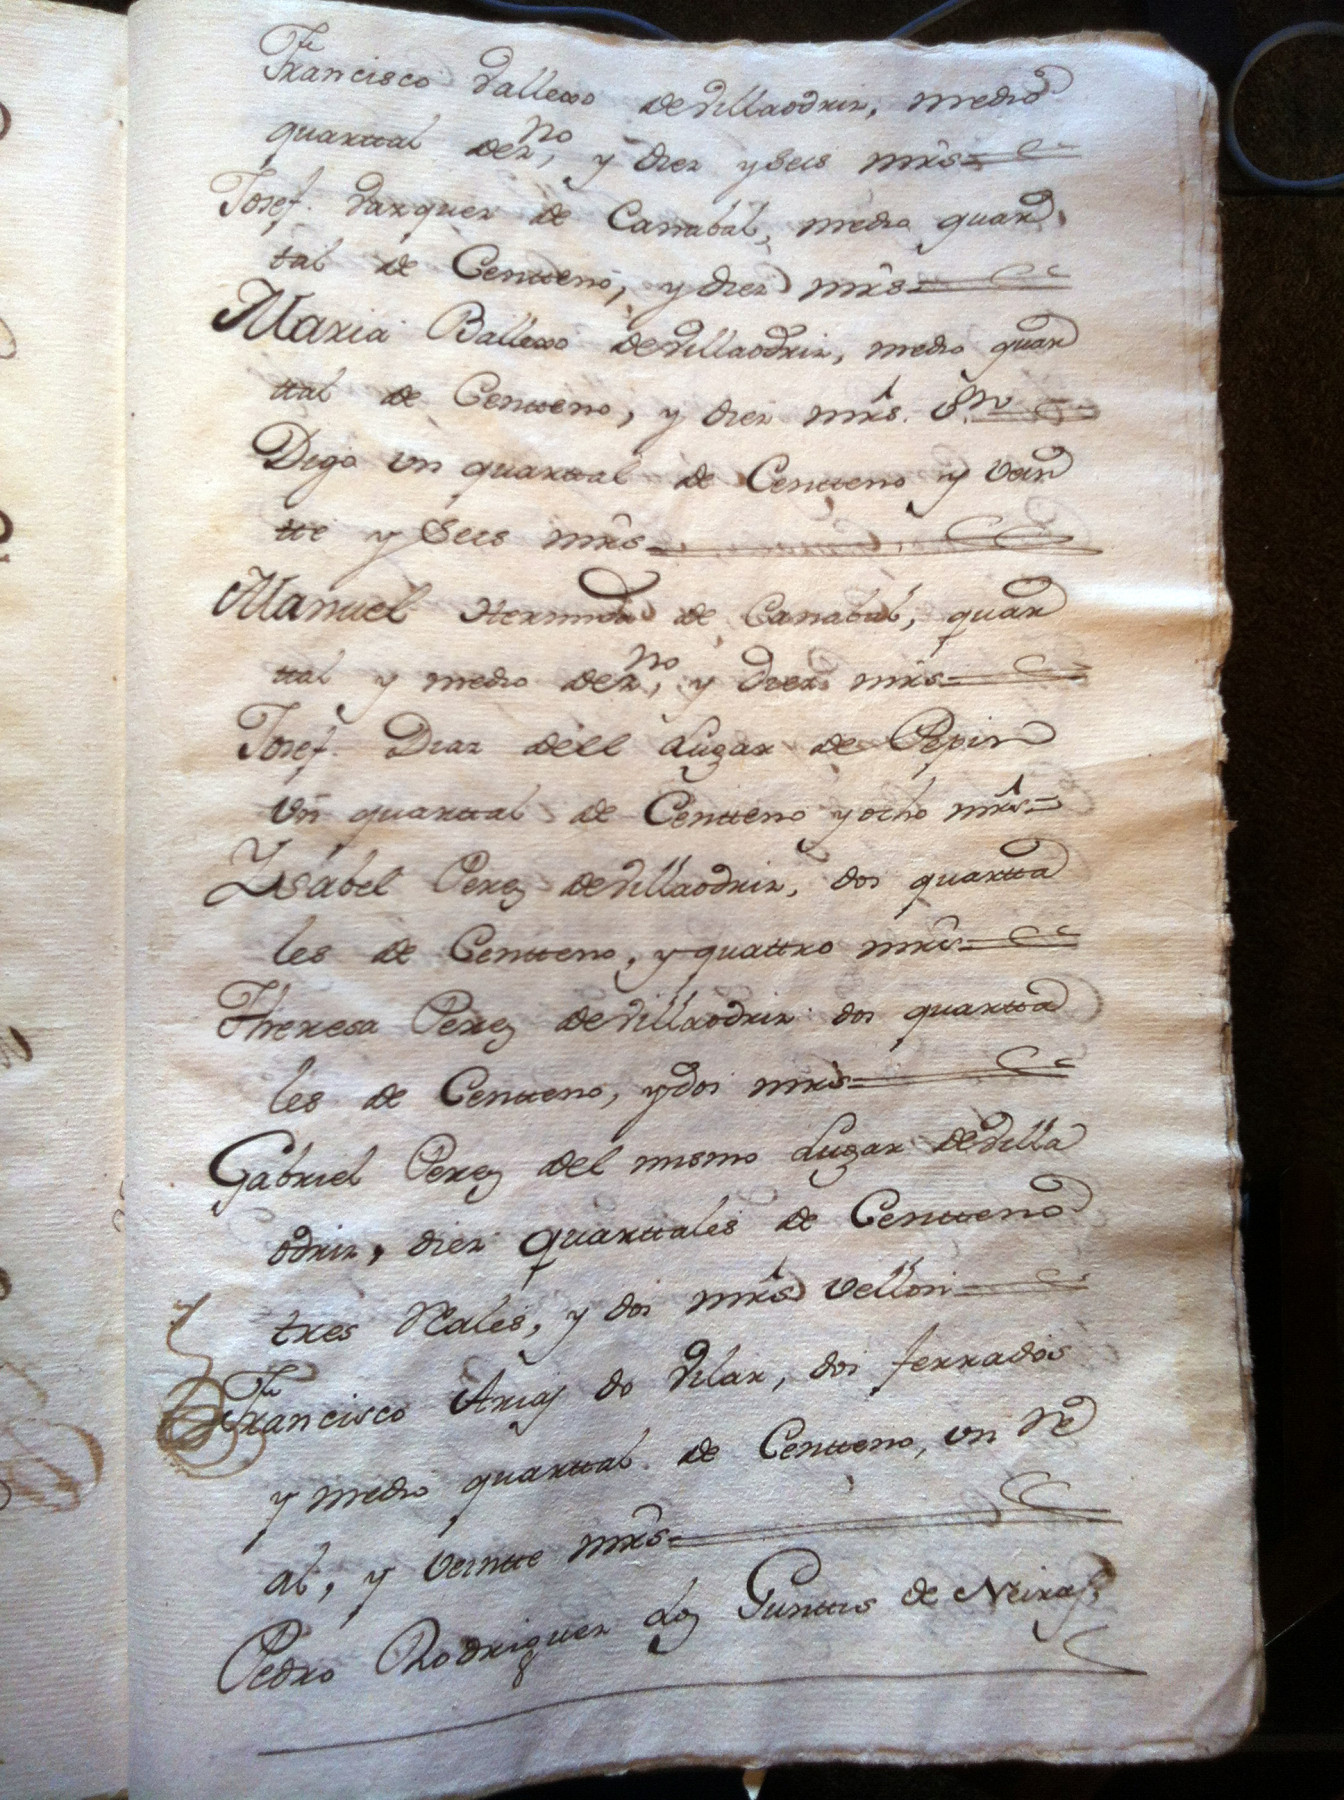 Francisco Vallexo de Villaodriz, medio
quarttal de z.no, y diez y seis mrs
Josef. Vazquez de Canabal, medio quar
tal de Centteno, y diez mrs
Maria Ballexo de Villaodriz, medio quar
ttal de Centteno, y diez mrs. v.n
Digo un quarttal de Centteno y vein
tte y seis mrs
Manuel Hermida de Canabal, quar
ttal y medio de z.no, y diez mrs
Josef. Diaz dell Lugar de Pepin
un quarttal de Centteno y ocho mrs
Ysabel Perez de Villaodriz, dos quartta
les de Centteno, y quattro mrs
Theresa Perez de Villaodriz dos quartta
les de Centteno, y dos mrs
Gabriel Perez del mismo Lugar de Villa
odriz, diez quarttales de Centteno
tres Rales, y dos mrs vellon
Francisco Arias do Vilar, dos ferrados
y medio quarttal de Centteno, un Re
al, y veintte mrs
Pedro Rodriguez de Neiras,